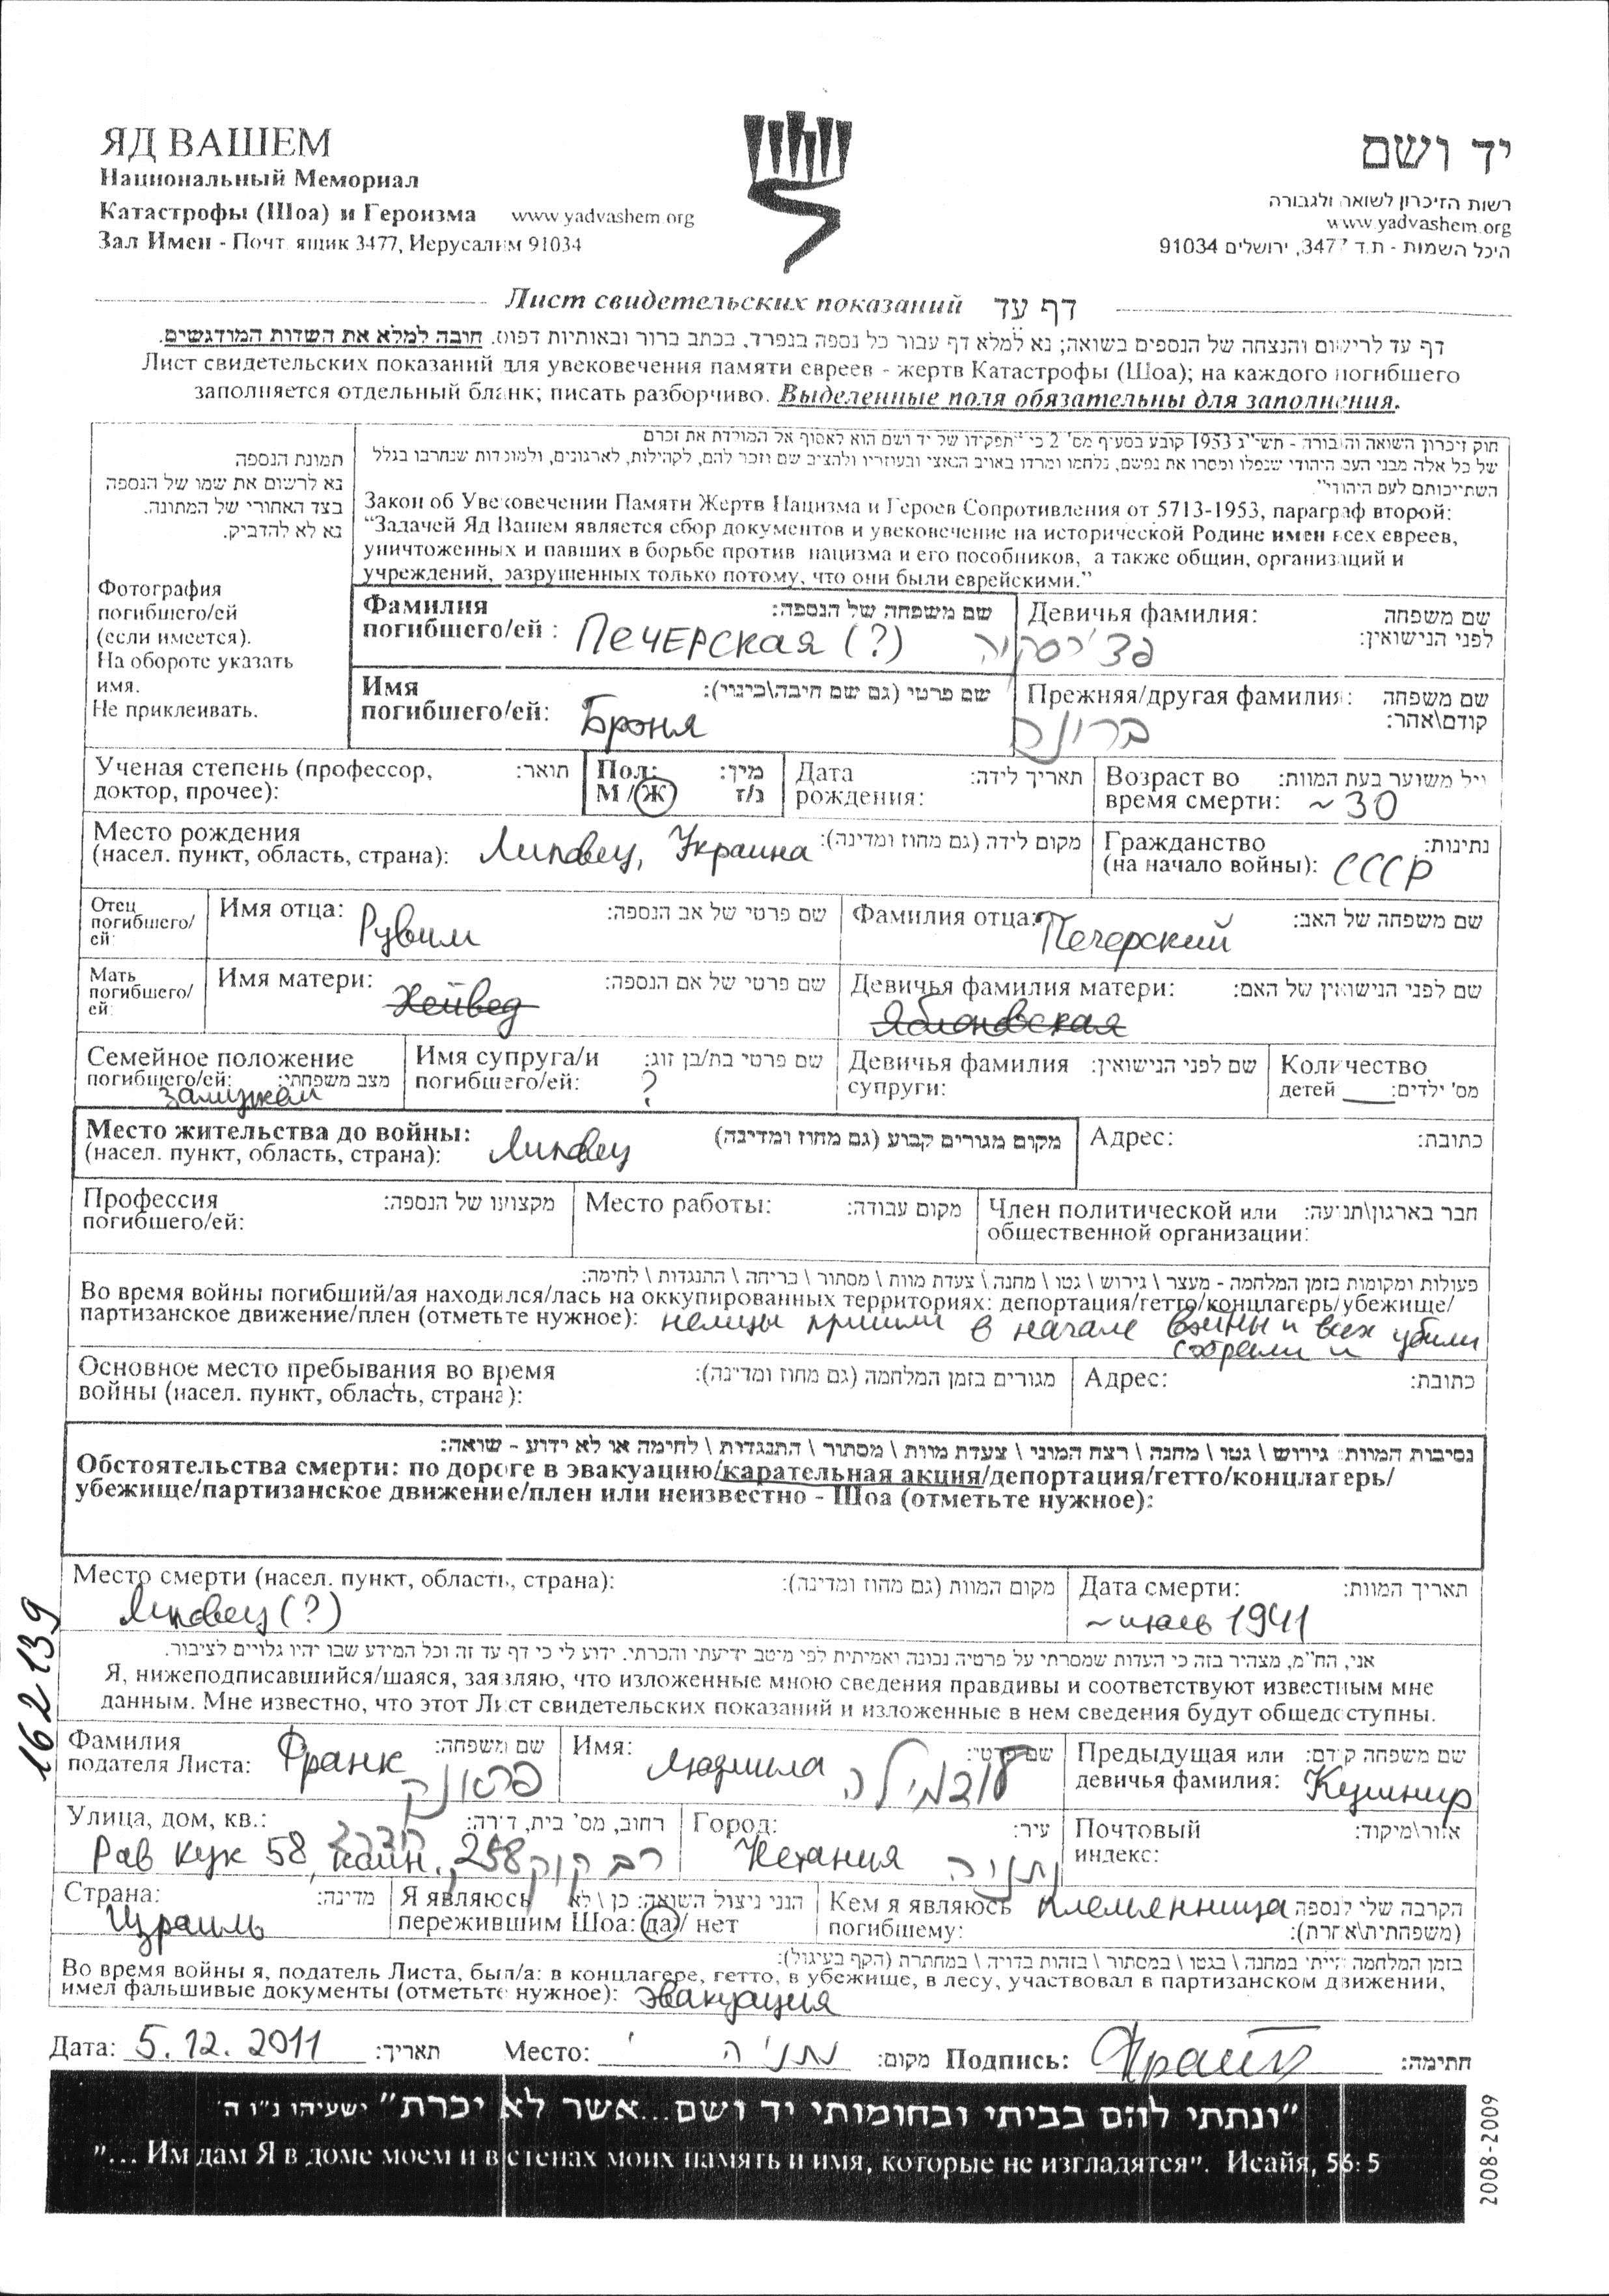 ЯД ВАШЕМ
Национальный Мемориал
Катастрофы (Шоа) и Героизма www.yadvashem.org
Зал Имен - Почт. ящик 3477, Иерусалим 91034
יד ושם
רשות הזיכרון לשואה ולגבורה
www.yadvashem.org
היכל השמות - ת.ד 3477, ירושלים 91034
Лист свидетельских показаний דף עד
דף עד לרישום והנצחה של הנספים בשואה; נא למלא דף עבור כל נספה בנפרד, בכתב ברור ובאותיות דפוס. חובה למלא את השדות המודגשים.
Лист свидетельских показаний для увековечения памяти евреев - жертв Катастрофы (Шоа); на каждого погибшего
заполняется отдельный бланк; писать разборчиво. Выделенные поля обязательны для заполнения.
תמונת הנספה
נא לרשום את שמו של הנספה
בצד האחורי של התמונה.
נא לא להדביק.
Фотография
погибшего/ей
(если имеется).
На обороте указать
имя.
Не приклеивать.
חוק זיכרון השואה והגבורה - תשי"ג 1953 קובע בסעיף מס' 2 כי "תפקידו של יד ושם הוא לאסוף אל המולדת את זכרם
של כל אלה מבני העם היהודי שנפלו ומסרו את נפשם, נלחמו ומרדו באויב הנאצי ובעוזריו ולהציב שם וזכר להם, לקהילות, לארגונים, ולמוסדות שנחרבו בגלל
השתייכותם לעם היהודי".
Закон об Увековечении Памяти Жертв Нацизма и Героев Сопротивления от 5713-1953, параграф второй:
“Задачей Яд Вашем является сбор документов и увековечение на исторической Родине имен всех евреев,
уничтоженных и павших в борьбе против нацизма и его пособников, а также общин, организаций и
учреждений, разрушенных только потому, что они были еврейскими.”
Фамилия שם משפחה של הנספה:
погибшего/ей : Печерская (?) פצ'רסקיה
Девичья фамилия: שם משפחה
לפני הנישואין:
Имя שם פרטי (גם שם חיבה\כינוי):
погибшего/ей: Броня ברוניה
Прежняя/другая фамилия: שם משפחה
קודם\אחר:
Ученая степень (профессор, תואר:
доктор, прочее):
Пол: מין:
М / Ж ז/נ
Дата תאריך לידה:
рождения:
Возраст во גיל משוער בעת המוות:
время смерти: ~ 30
Место рождения
(насел. пункт, область, страна): Липовец, Украина מקום לידה (גם מחוז ומדינה):
Гражданство נתינות:
(на начало войны): СССР
Отец
погибшего/
ей:
Имя отца: Рувим שם פרטי של אב הנספה:
Фамилия отца: Печерский שם משפחה של האב:
Мать
погибшего/
ей:
Имя матери: Хейвед שם פרטי של אם הנספה:
Девичья фамилия матери: Яблоновская שם לפני הנישואין של האם:
Семейное положение
погибшего/ей: מצב משפחתי:
замужем
Имя супруга/и שם פרטי בת/בן זוג:
погибшего/ей: ?
Девичья фамилия שם לפני הנישואין:
супруги:
Количество
детей ___ מס' ילדים:
Место жительства до войны:
(насел. пункт, область, страна): Липовец מקום מגורים קבוע (גם מחוז ומדינה)
Адрес: כתובת:
Профессия מקצועו של הנספה:
погибшего/ей:
Место работы: מקום עבודה:
Член политической или חבר בארגון\תנועה:
общественной организации:
פעולות ומקומות בזמן המלחמה - מעצר \ גירוש \ גטו \ מחנה \ צעדת מוות \ מסתור \ בריחה \ התנגדות \ לחימה:
Во время войны погибший/ая находился/лась на оккупированных территориях: депортация/гетто/концлагерь/убежище/
партизанское движение/плен (отметьте нужное): немцы пришли в начале войны и всех убили
собрали и
Основное место пребывания во время מגורים בזמן המלחמה (גם מחוז ומדינה):
войны (насел. пункт, область, страна):
Адрес: כתובת:
נסיבות המוות: גירוש \ גטו \ מחנה \ רצח המוני \ צעדת מוות \ מסתור \ התנגדות \ לחימה או לא ידוע - שואה:
Обстоятельства смерти: по дороге в эвакуацию/карательная акция/депортация/гетто/концлагерь/
убежище/партизанское движение/плен или неизвестно - Шоа (отметьте нужное):
Место смерти (насел. пункт, область, страна): מקום המוות (גם מחוז ומדינה):
Липовец (?)
Дата смерти: תאריך המוות:
~ июль 1941
162139
אני, הח"מ, מצהיר בזה כי העדות שמסרתי על פרטיה נכונה ואמיתית לפי מיטב ידיעתי והכרתי. ידוע לי כי דף עד זה וכל המידע שבו יהיו גלויים לציבור.
Я, нижеподписавшийся/шаяся, заявляю, что изложенные мною сведения правдивы и соответствуют известным мне
данным. Мне известно, что этот Лист свидетельских показаний и изложенные в нем сведения будут общедоступны.
Фамилия שם משפחה:
подателя Листа: Франк פראנק
Имя: Людмила שם פרטי: לודמילה
Предыдущая или שם משפחה קודם:
девичья фамилия: Кушнир
Улица, дом, кв.: רחוב, מס' בית, דירה:
Рав Кук 58, 258 רב קוק
Город: Нетания עיר: נתניה
Почтовый אזור\מיקוד:
индекс:
Страна: מדינה:
Израиль
Я являюсь הנני ניצול השואה: כן \ לא
пережившим Шоа: да / нет
Кем я являюсь племянница הקרבה שלי לנספה
погибшему: (משפחתית\אחרת):
בזמן המלחמה הייתי במחנה \ בגטו \ במסתור \ בזהות בדויה \ במחתרת (הקף בעיגול):
Во время войны я, податель Листа, был/а: в концлагере, гетто, в убежище, в лесу, участвовал в партизанском движении,
имел фальшивые документы (отметьте нужное): эвакуация
Дата: 5.12.2011 תאריך: Место: נתניה מקום: Подпись: חתימה:
"ונתתי להם בביתי ובחומותי יד ושם...אשר לא יכרת" ישעיהו נ"ו ה'
"... Им дам Я в доме моем и в стенах моих память и имя, которые не изгладятся". Исайя, 56: 5
2008-2009